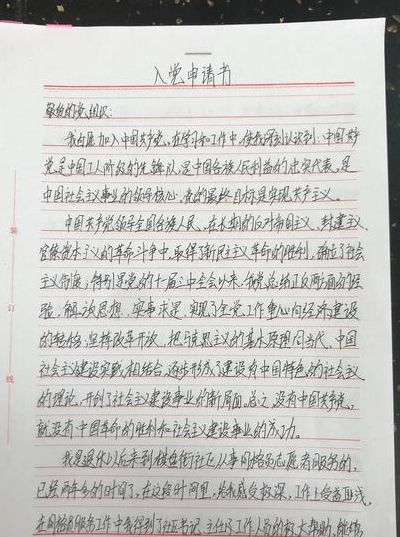 入党申请书
敬爱的党组织：
我自愿加入中国共产党，在学习和工作中使我深刻认识到：中国共产
党是中国工人阶级的先锋队，是中国各族人民利益的忠实代表，是
中国社会主义事业的领导核心，党的最终目标是实现共产主义。
中国共产党领导全国各族人民，在长期的反对帝国主义、封建主义、
官僚资本主义的革命斗争中，取得了新民主主义革命的胜利，确立了社会
主义制度，特别是党的十一届三中全会以来，我党总结正反两方面的经
验，解放思想，实事求是，实现了全党工作重心向经济建设
的转移，坚持改革开放，把马克思主义的基本原理同当代中国
社会主义建设实践相结合，逐步形成了建设有中国特色的社会主义
的理论，开创了社会主义建设事业的新局面。总之，没有中国共产党，
就没有中国革命的胜利和社会主义建设事业的成功。
我是退休以后来到楼盘街社区从事网格员志愿者服务的，
已经两年多的时间了，在这段时间里，给我感受颇深，工作上
在网格员服务工作中我得到了社区书记、主任及工作人员的极大帮助，
装
订
线